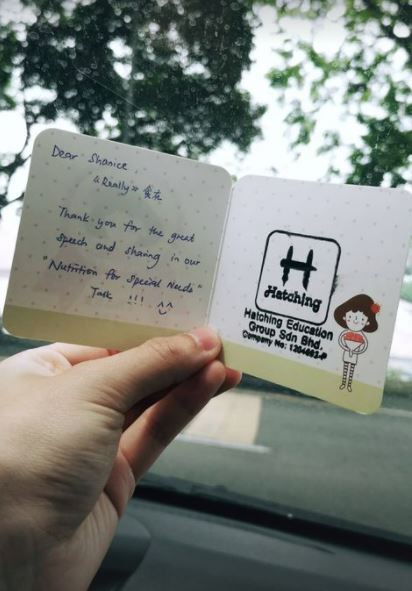 Dear Shanice,
&Really» 食在
Thank you for the great
speech and sharing in our
"Nutrition for special Needs"
Talk !!! ^^
H
Hatching
Hatching Education
Group Sdn Bhd.
Company No: